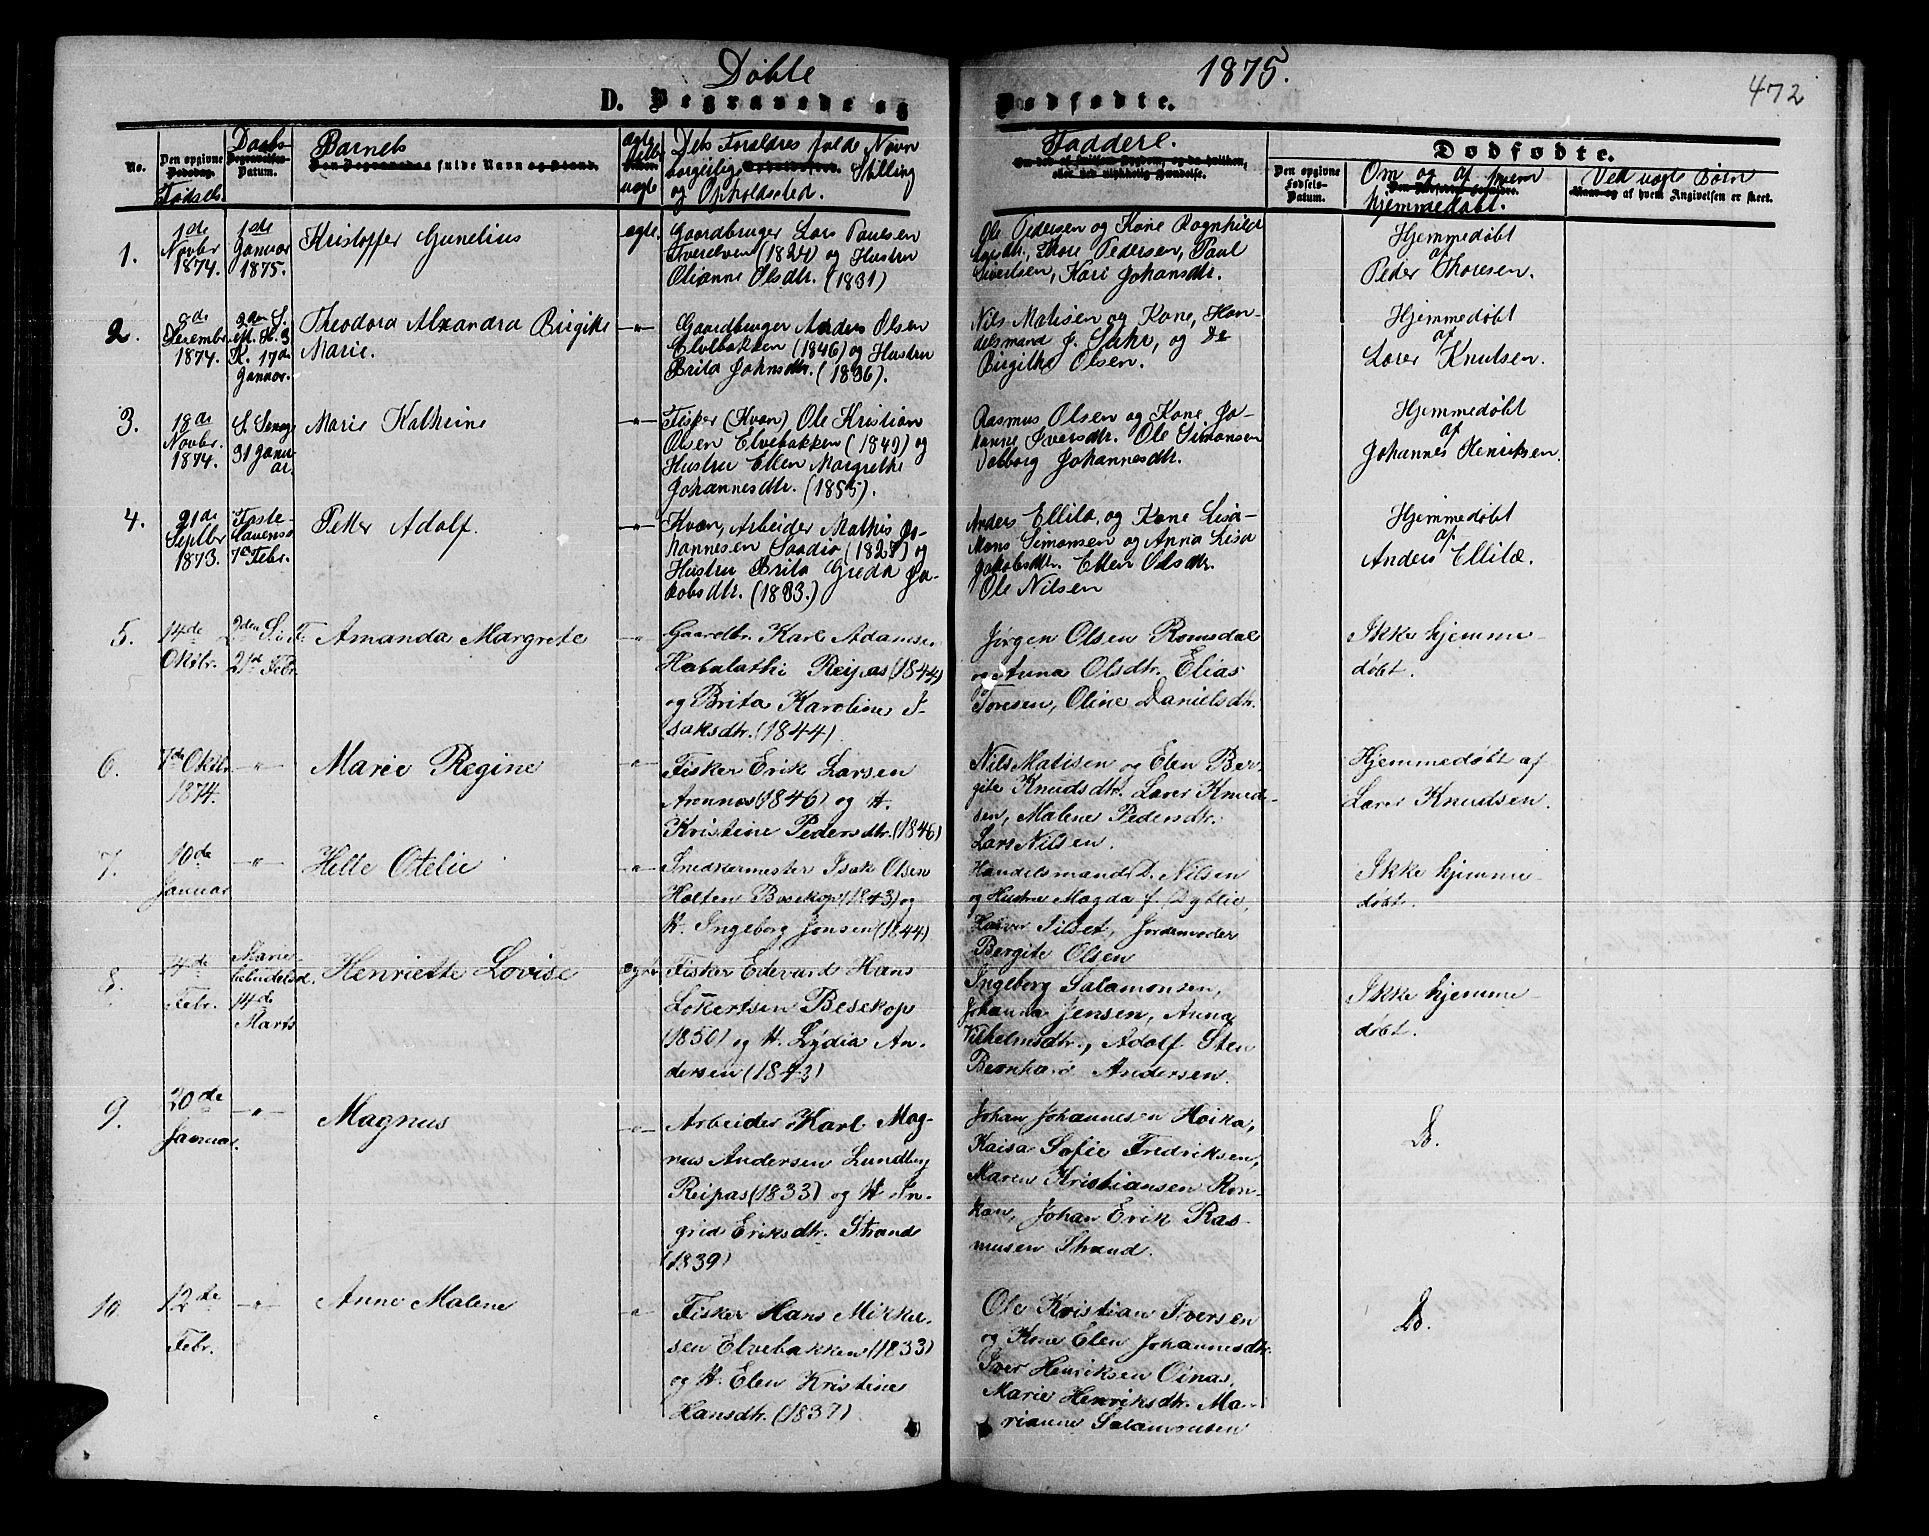 Døbte
1875.
472
D. Begravede og
Dødfødte.
No.
Den opgivne
Dødsdag.
Fødsels
Daabs
Begravelses-
Datum.
Barnets
Den Begravedes fulde Navn og Stand.
ægte
eller
uægte
Dets Forældres fulde Navn
borgerlige Stilling
og Opholdssted.
Faddere.
Om død af hvilken Sygdom, og da hvilken,
eller ved ulykkelig Hændelse.
Dødfødte.
Den opgivne
Fødsels-
Datum.
Om og af hvem
hjemmedøbt.
Ved uægte Børn
Naar og af hvem Angivelsen er skeet.
1.
1de
Novbr
1874.
1ste
Januar
1875.
Kristoffer Gunelius
ægte
Gaardbruger Lars Paulsen
Tverelven (1824) og Hustru
Olianne Olsdtr. (1831)
Ole Pedersen og Kone Ragnhild
Thore Pedersen, Paul
Sivertsen, Kari Johansdtr.
Hjemmedøbt
af
Peder Thoresen.
2.
Desembr
1874.
2den S.
eft. H. 3
K. 17de
Januar.
Theodora Alxandra Birgitte
Marie.
-"-
Gaardbruger Anders Olsen
Elvebakken (1846) og Hustru
Brita Johnsdtr. (1836).
Nils Matisen og Kone, Han-
delsmand J. Suhr, og
Birgithe Olsen.
Hjemmedøbt
af
Lærer Knutsen.
3.
18de
Novbr.
1874.
S. Sexag
31 Janu
ar.
Marie Kathrine
-"-
Fisker (Kvæn) Ole Kristian
Olsen Elvebakken (1849) og
Hustru Ellen Margrethe
Johannesdtr. (1855).
Rasmus Olsen og Kone Jo-
hanne Iversdtr. Ole Simonsen
Valborg Johannesdtr.
Hjemmedøbt
af
Johannes Henriksen.
4.
21de
Septbr
1873.
Faste-
lavenss
7de Febr.
Petter Adolf.
-"-
Kvæn, Arbeider Mathis Jo-
hannesen Saadio (1827) og
Hustru Brita Greda Ja-
kobsdtr. (1833.)
Anders Ellilæ, og Kone Lisa
Mons Simonsen og Anna Lisa
Jakobsdtr. Ellen Olsdtr.
Ole Nilsen
Hjemmedøbt
af
Anders Ellilæ.
5.
14de
Oktbr.
2den S. i F.
21de Febr.
Amanda Margrete
-"-
Gaardbr. Karl Adamsen
Habalathi Reipas (1844)
og Brita Karoline I-
saksdtr. (1844).
Jørgen Olsen Romsdal
og Anna Olsdtr. Elias
Toresen, Oline Danielsdtr.
Ikke hjemme-
døbt.
6.
7de Oktbr
1874.
-"-
Marie Regine
-"-
Fisker Erik Larsen
Aronnes (1846) og H.
Kristine Pedersdtr. (1846)
Nils Matisen og Elen Ber-
gite Knudsdtr. Lærer Knud-
sen, Malene Pedersdtr.
Lars Nilsen.
Hjemmedøbt af
Lærer Knudsen.
7.
10de
Januar
-"-
Helle Otelie
-"-
Snedkermester Isak Olsen
Holten Bosekop (1843) og
H. Ingeborg Jonsen (1844)
Handelsmand D. Nilsen
og Hustru Magda f. Dyblie,
Halvor Tilset, Jordemoder
Bergite Olsen
Ikke hjemme-
døbt.
8.
4de
Febr.
Marie
bebudelsesd.
14de
Marts
Henriette Lovise
ægte
Fisker Edevard Hans
Lokertsen Besekop
(1850) og H. Lydia An-
dersen (1843)
Ingeborg Salamonsen,
Johanna Jensen, Anna
Vilhelmsdtr., Adolf Sten
Bernhard Andersen.
Ikke hjemme-
døbt.
9.
20de
Januar.
-"-
Magnus
-"-
Arbeider Karl Mag-
nus Andersen Lundberg
Reipas (1833) og H. In-
grid Eriksdtr. Strand
(1839)
Johan Johannesen Hoika,
Kaisa Sofie Fredriksen,
Maren Kristiansen Ron-
kan, Johan Erik Ras-
musen Strand.
Do.
10.
12te
Febr.
-"-
Anne Malene
-"-
Fisker Hans Mikkel-
sen Elvebakken (1833)
og H. Elen Kristine
Hansdtr. (1837).
Ole Kristian Iversen
og Kone Elen Johannesdtr.
Iver Henriksen Oinas,
Marie Henriksdtr. Ma-
rianne Salamonsen
Do.